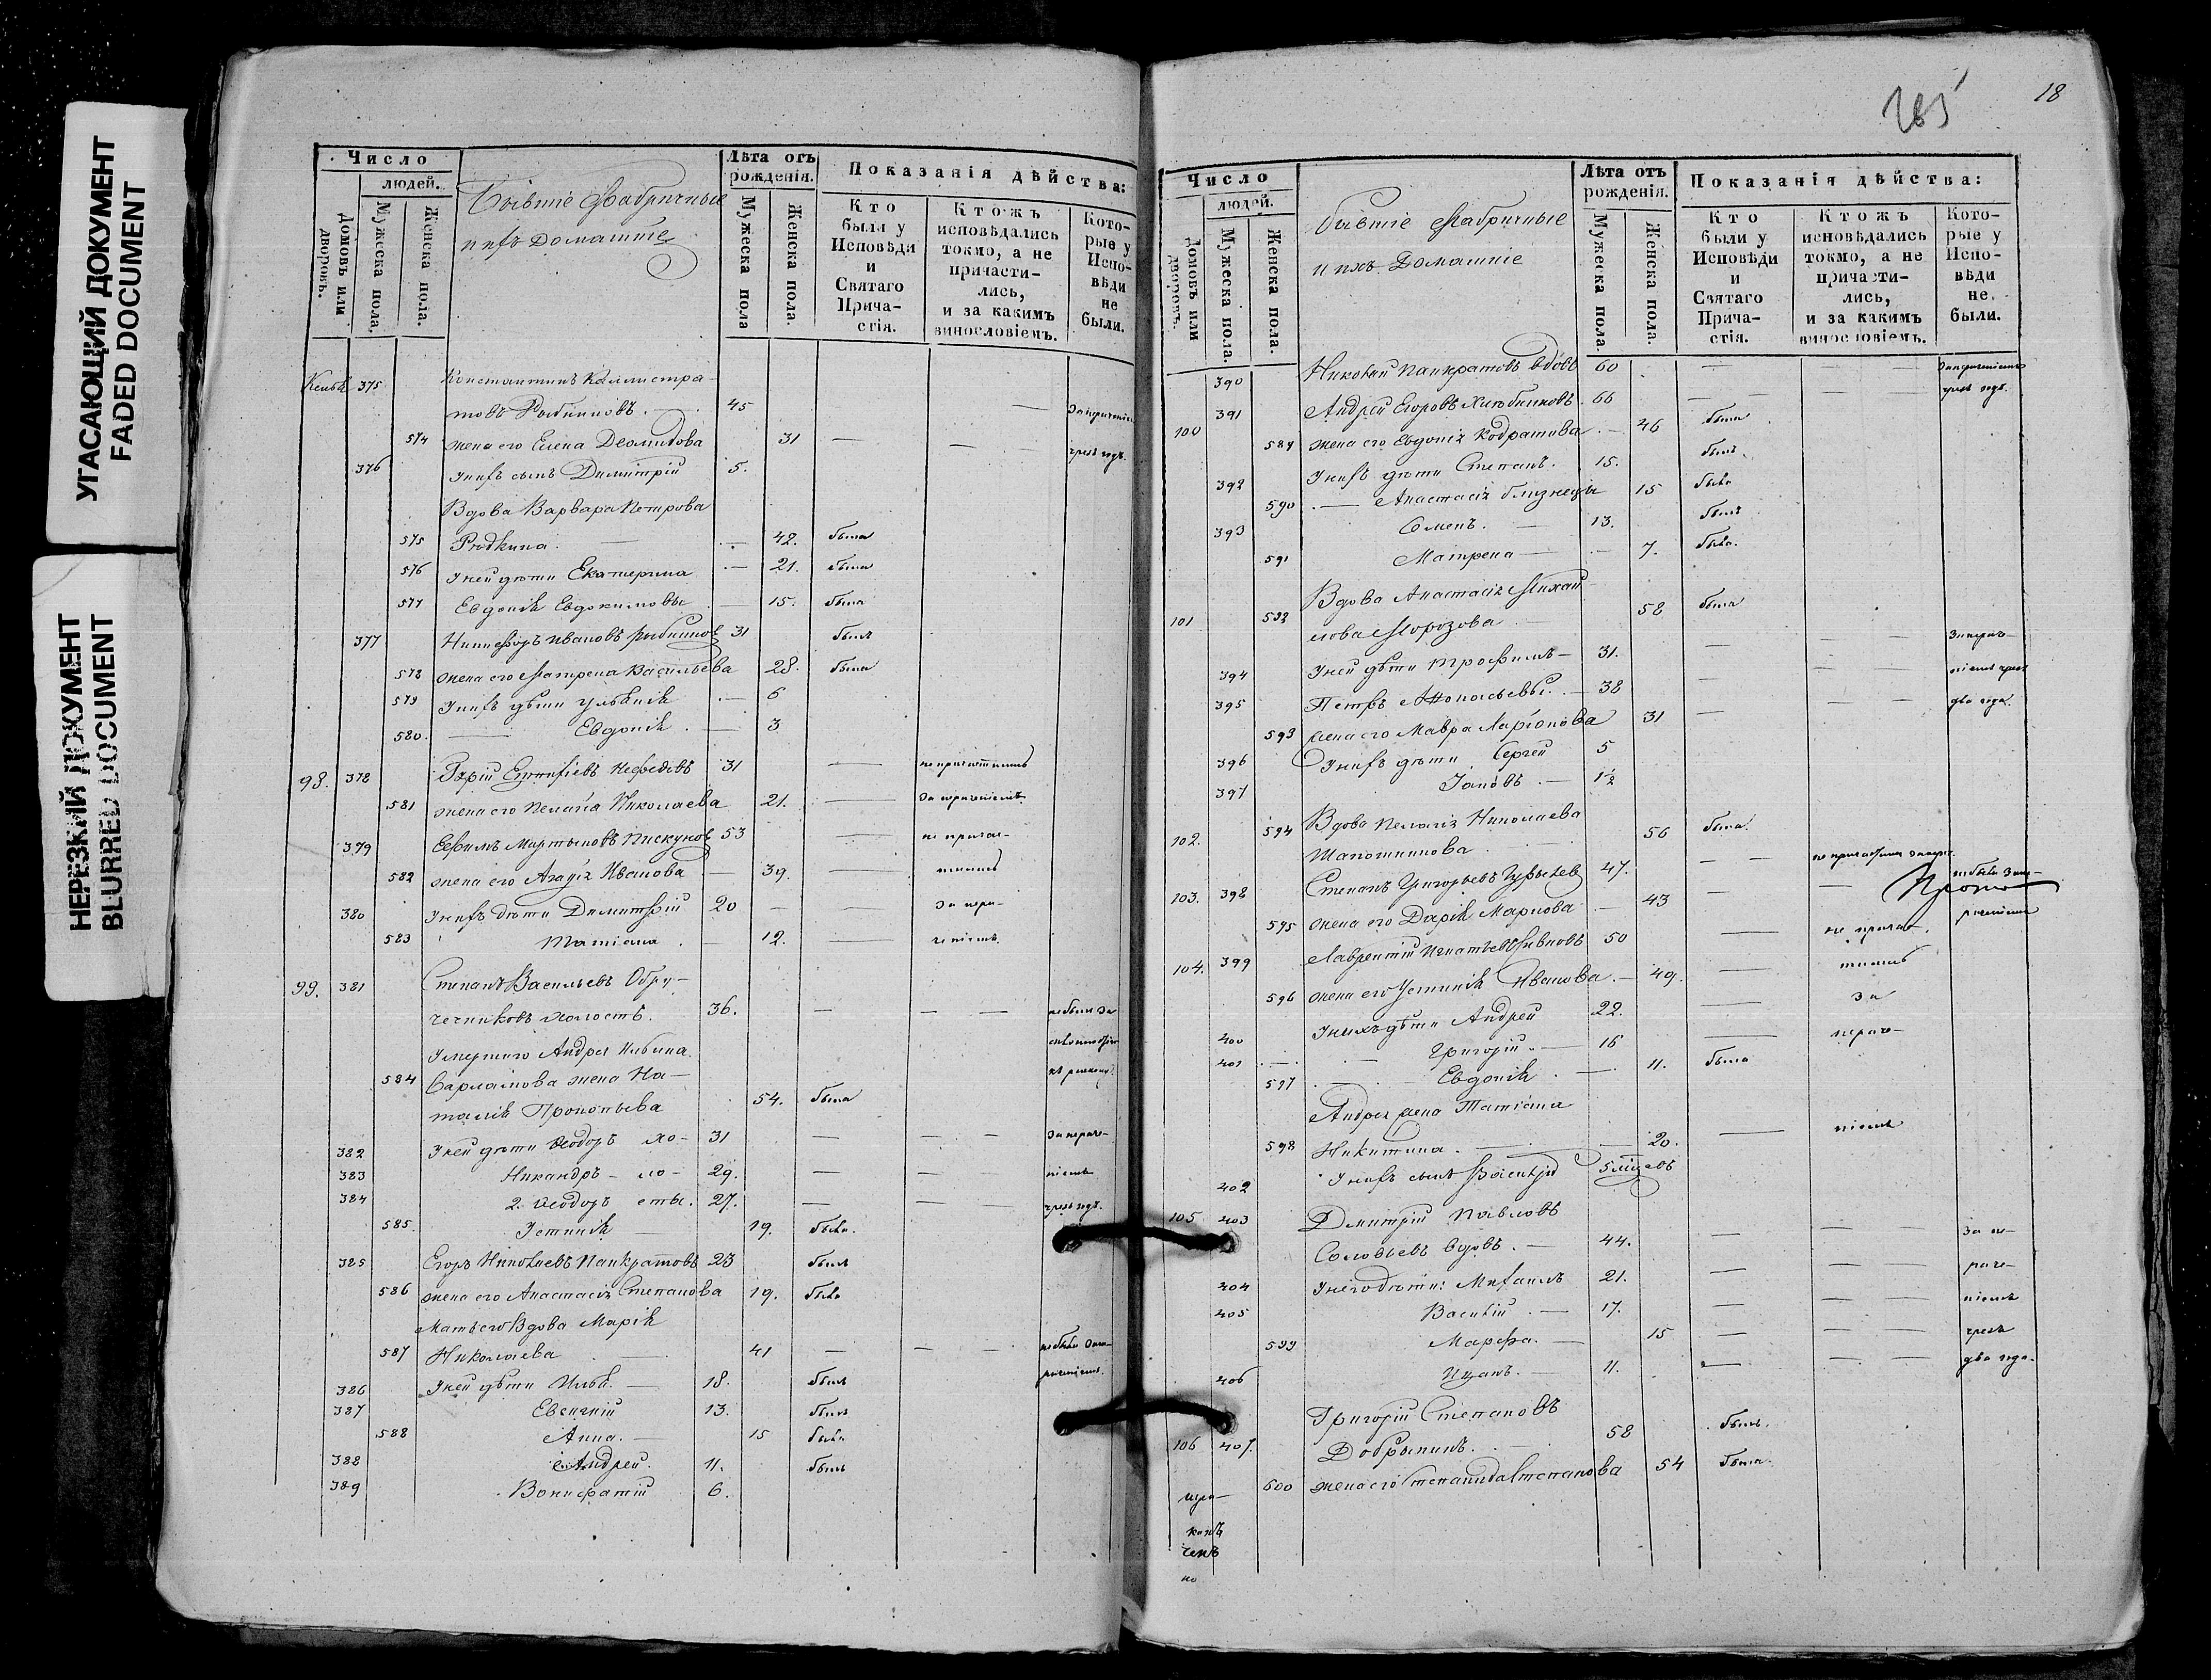 УГАСАЮЩИЙ ДОКУМЕНТ
FADED DOCUMENT
НЕРЕЗКИЙ ДОКУМЕНТ
BLURRED DOCUMENT
Число
людей.
Домовъ или дворовъ.
Мужеска пола.
Женска пола.
Бывшіе Фабричные
и ихъ Домашніе
Лѣта отъ рожденія.
Мужеска пола
Женска пола.
Показанія дѣйства:
Кто были у Исповѣди и Святаго Прича- стія.
Ктожъ исповѣдались токмо, а не причасти- лись, и за какимъ винословіемъ.
Кото- рые у Испо- вѣди не были.
375 Константинъ Каллистра-
товъ 45
574 жена его Елена Деомидова 31
376 У нихъ сынъ Димитрій 5.
Вдова Варвара Петрова
575 42. была
576 У ней дѣти Екатерина 21. была
577 Евдокія Евдокимовы 15. была
377 Никифоръ Ивановъ 31 былъ
578 жена его Матрена Васильева 28. была
579 У нихъ дѣти Ульянія 6
580. Евдокія 3
98. 378 31
581 жена его Пелагія Николаева 21.
379 Ефимъ Мартыновъ Пискуновъ 53 не причас-
582 жена его Агафія Иванова 39. тились
380 У нихъ дѣти Димитрій 20 за нера-
583 Татіана 12.ченіемъ
99. 381 Степанъ Васильевъ Обру-
чениковъ холостъ. 36.
Умершаго Андрея Ильина
584 жена На-
талія Прокопьева 54. была
382 У ней дѣти Ѳеодоръ хо- 31 за нераче-
383 Никандръ ло- 29. ніемъ
384 2. Ѳеодоръ сты. 27.
585. Устинія 19. была.
385 Егоръ Николаевъ Панкратовъ 23 былъ
586 жена его Анастасія Степанова 19. была
Мать его Вдова Марія
587 Николаева 41
386 У ней дѣти Илья 18. былъ
387 Евгеній 13. былъ
588 Анна. 15 была
388 Андрей. 11. былъ
389 Вонифатій 6.
265
18
Число
людей.
Домовъ или дворовъ.
Мужеска пола.
Женска пола.
Бывшіе Фабричные
и ихъ Домашніе
Лѣта отъ рожденія.
Мужеска пола.
Женска пола.
Показанія дѣйства:
Кто были у Исповѣди и Святаго Прича- стія.
Ктожъ исповѣдались токмо, а не причасти- лись, и за какимъ винословіемъ.
Кото- рые у Испо- вѣди не были.
390 Николай Панкратовъ вдовъ 60
391 Андрей Егоровъ Хлѣбниковъ 66
100 589 жена его Евдокія Кодратива 46 была
392 У нихъ дѣти Степанъ. 15. былъ
590 Анастасія близнецы 15 была
393 Семенъ. 13. былъ
591 Матрена 7. была.
Вдова Анастасія Михай
101 592 лова Морозова 58 была
394 У ней дѣти Трофимъ 31. за нерач-
395 Петръ 38 ніемъ чрезъ
593 жена его Мавра Ларіонова 31 два года.
396 У нихъ дѣти Сергей 5
397 Іаковъ 1½
594 Вдова Пелагія Николаева
102. Шапошникова 56 была.
103. 398 Степанъ Григорьевъ 47.
595 жена его Дарія Маркова 43
104. 399 Лаврентій 50 не причас-
596 жена его Устинія Иванова. 49. тились
400 У нихъ дѣти Андрей 22. за
401 Григорій 16 нераче-
597 Евдокія 11. была
Андрея жена Татіана
598 Никитина. 20. ніемъ
402 У нихъ сынъ Василій
105 403 Дмитрій Павловъ
Соловьевъ вдовъ. 44. за не-
404 У него дѣти: Михаилъ 21. раче-
405 Василій 17. ніемъ
599 Марфа. 15 чрезъ
406 11. два года.
Григорій Степановъ
106 407. Добрынинъ. 58 былъ.
600 жена его Степанида Степанова 54 была.